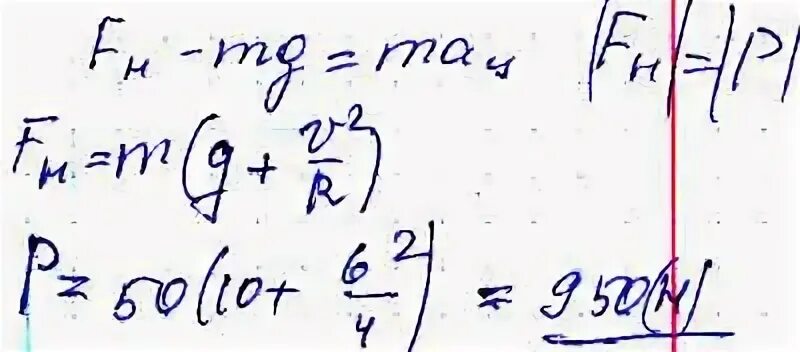 Fн - mg = maц |Fн| = |P|
Fн = m(g + v²/R)
P = 50(10 + 6²/4) = 950(Н)